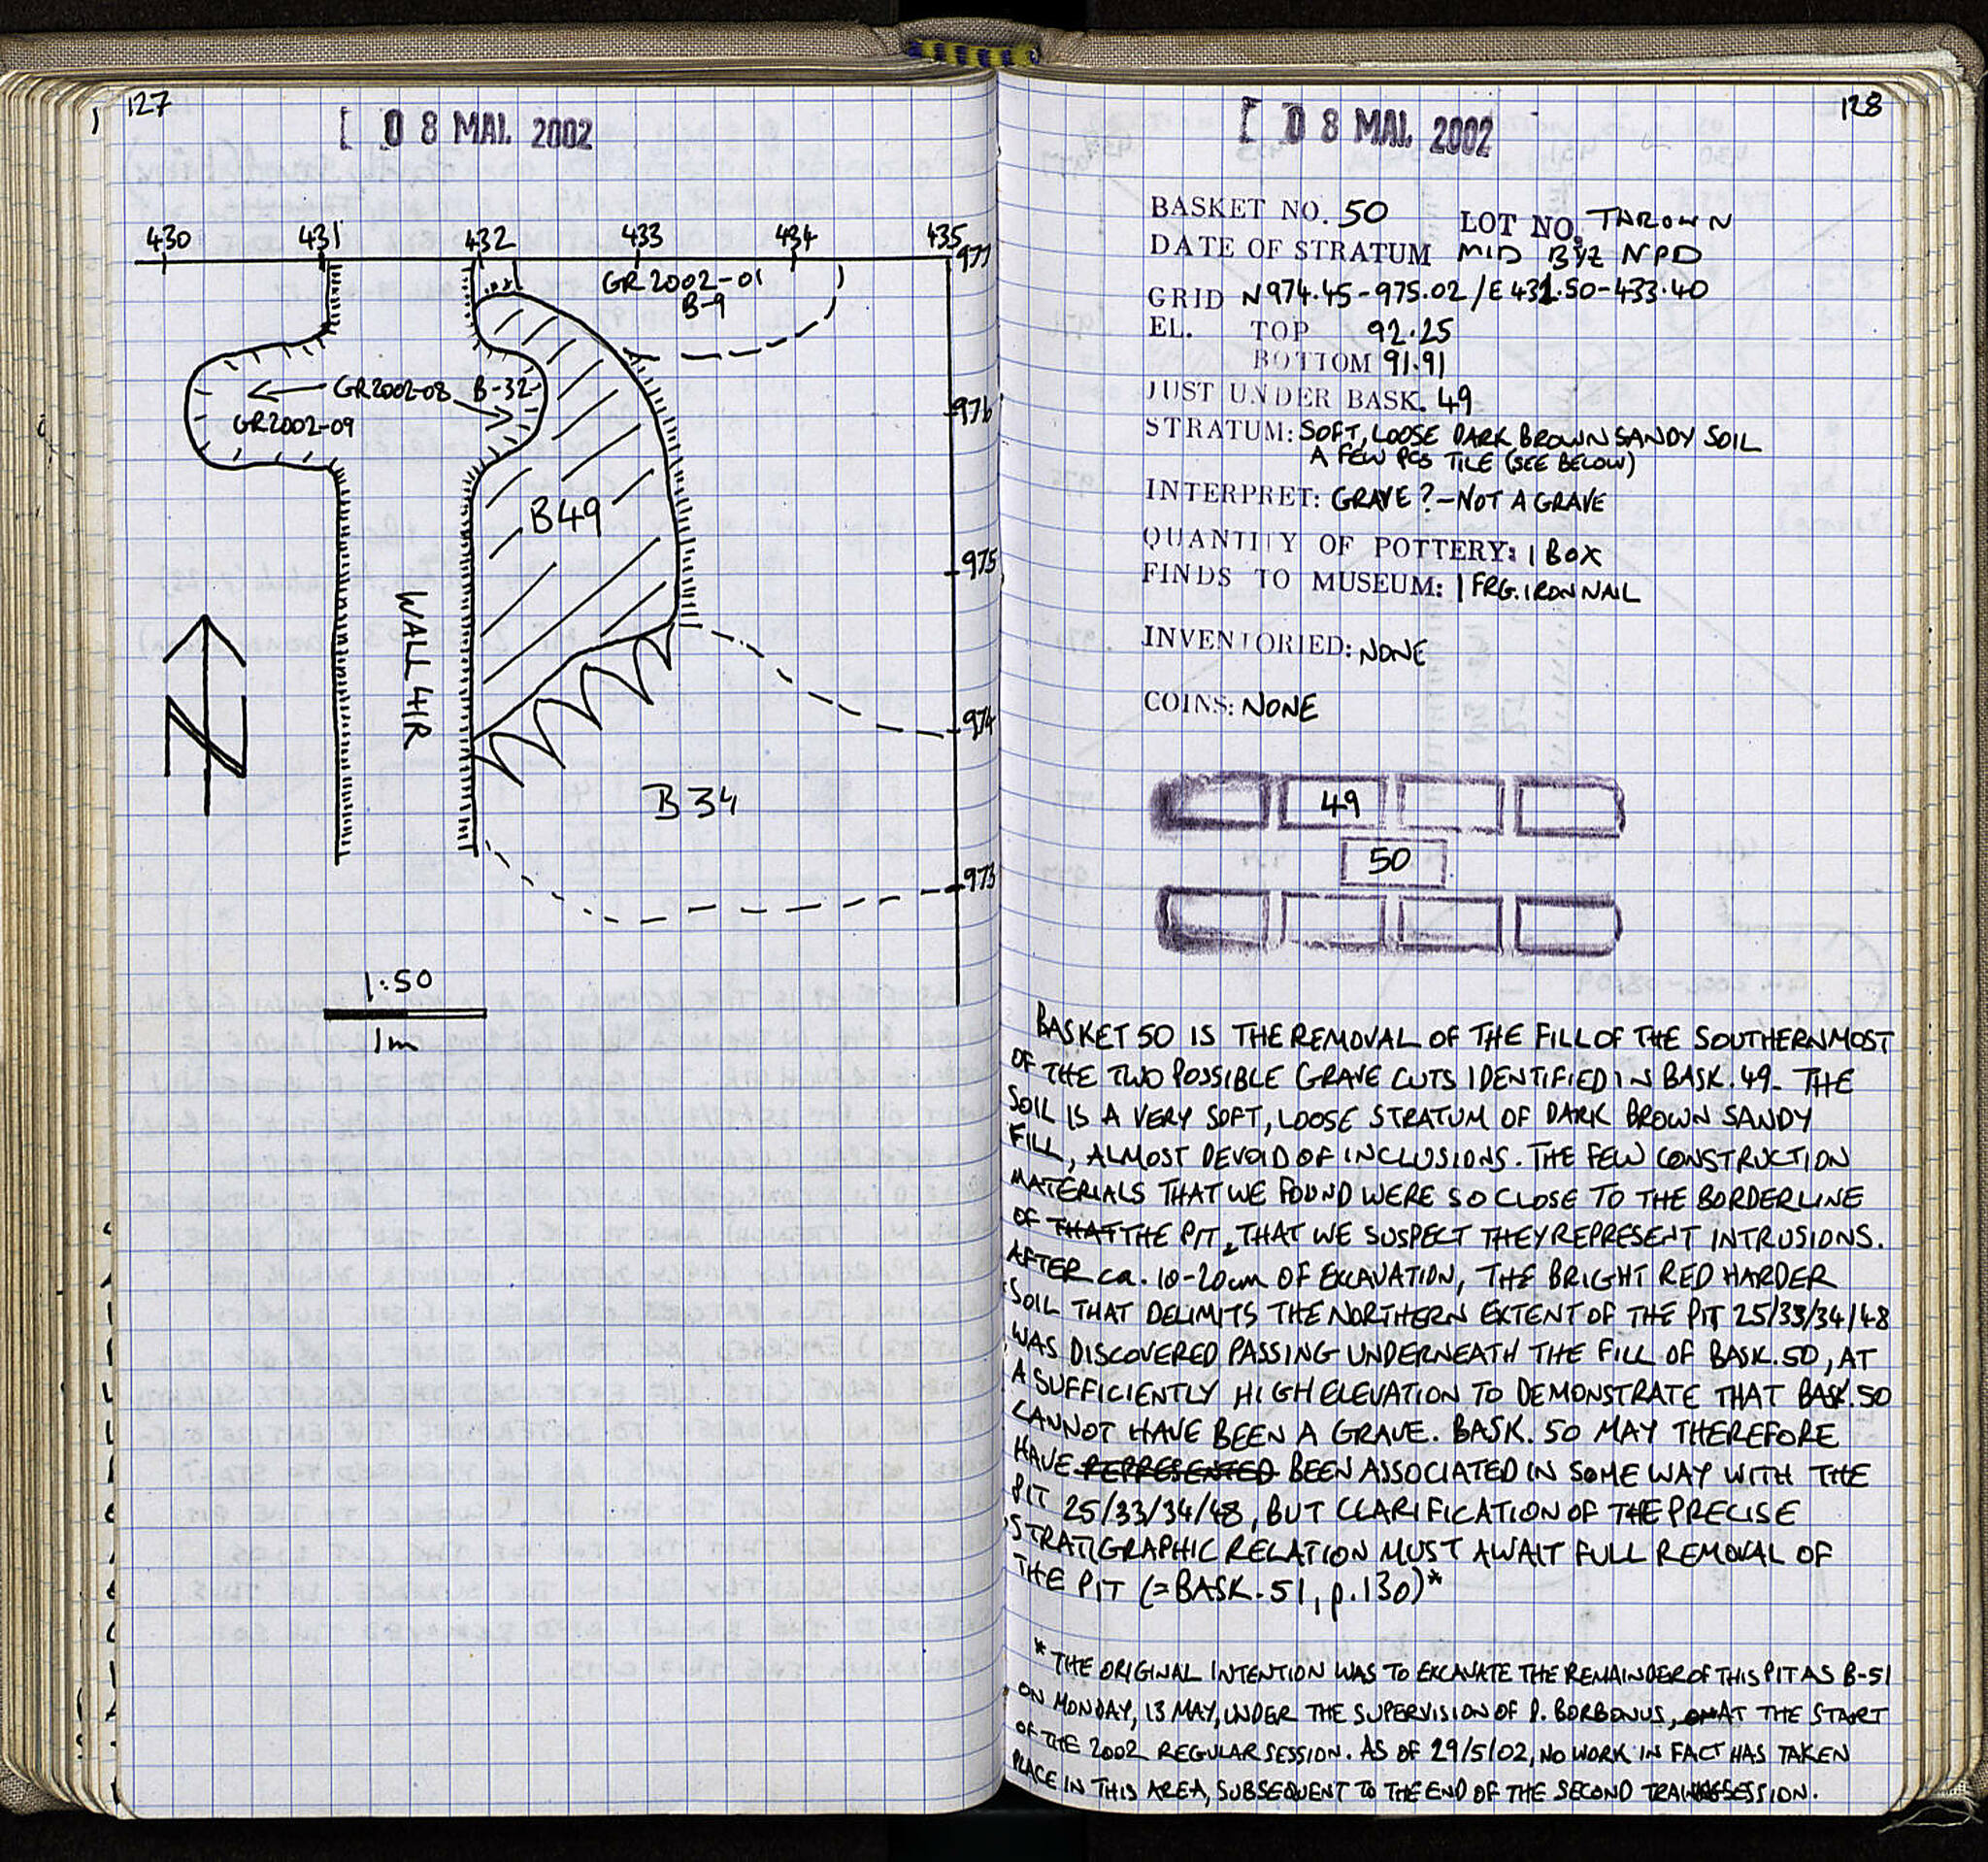 127
[ 0 8 MAI. 2002
430 431 432 433 434 435
977
GR2002-01
B-9
GR2002-08 B-32
976
GR2002-09
B49
975
WALL 41R
974
N
B34
973
1:50
1m
128
[ 0 8 MAI. 2002
BASKET NO. 50 LOT NO. THROWN
DATE OF STRATUM MID BYZ NPD
GRID N974.45-975.02/E431.50-433.40
EL. TOP 92.25
BOTTOM 91.91
JUST UNDER BASK. 49
STRATUM: SOFT, LOOSE DARK BROWN SANDY SOIL
A FEW PCS TILE (SEE BELOW)
INTERPRET: GRAVE? – NOT A GRAVE
QUANTITY OF POTTERY: 1 BOX
FINDS TO MUSEUM: 1 FRG. IRON NAIL
INVENTORIED: NONE
COINS: NONE
49
50
BASKET 50 IS THE REMOVAL OF THE FILL OF THE SOUTHERNMOST
OF THE TWO POSSIBLE GRAVE CUTS IDENTIFIED IN BASK. 49. THE
SOIL IS A VERY SOFT, LOOSE STRATUM OF DARK BROWN SANDY
FILL, ALMOST DEVOID OF INCLUSIONS. THE FEW CONSTRUCTION
MATERIALS THAT WE FOUND WERE SO CLOSE TO THE BORDERLINE
OF THAT THE PIT, THAT WE SUSPECT THEY REPRESENT INTRUSIONS.
AFTER ca. 10-20cm OF EXCAVATION, THE BRIGHT RED HARDER
SOIL THAT DELIMITS THE NORTHERN EXTENT OF THE PIT 25/33/34/48
WAS DISCOVERED PASSING UNDERNEATH THE FILL OF BASK. 50, AT
A SUFFICIENTLY HIGH ELEVATION TO DEMONSTRATE THAT BASK. 50
CANNOT HAVE BEEN A GRAVE. BASK. 50 MAY THEREFORE
HAVE REPRESENTED BEEN ASSOCIATED IN SOME WAY WITH THE
PIT 25/33/34/48, BUT CLARIFICATION OF THE PRECISE
STRATIGRAPHIC RELATION MUST AWAIT FULL REMOVAL OF
THE PIT (=BASK. 51, p.130)*
* THE ORIGINAL INTENTION WAS TO EXCAVATE THE REMAINDER OF THIS PIT AS B-51
ON MONDAY, 13 MAY, UNDER THE SUPERVISION OF D. BORBONUS, AT THE START
OF THE 2002 REGULAR SESSION. AS OF 29/5/02, NO WORK IN FACT HAS TAKEN
PLACE IN THIS AREA, SUBSEQUENT TO THE END OF THE SECOND SESSION.